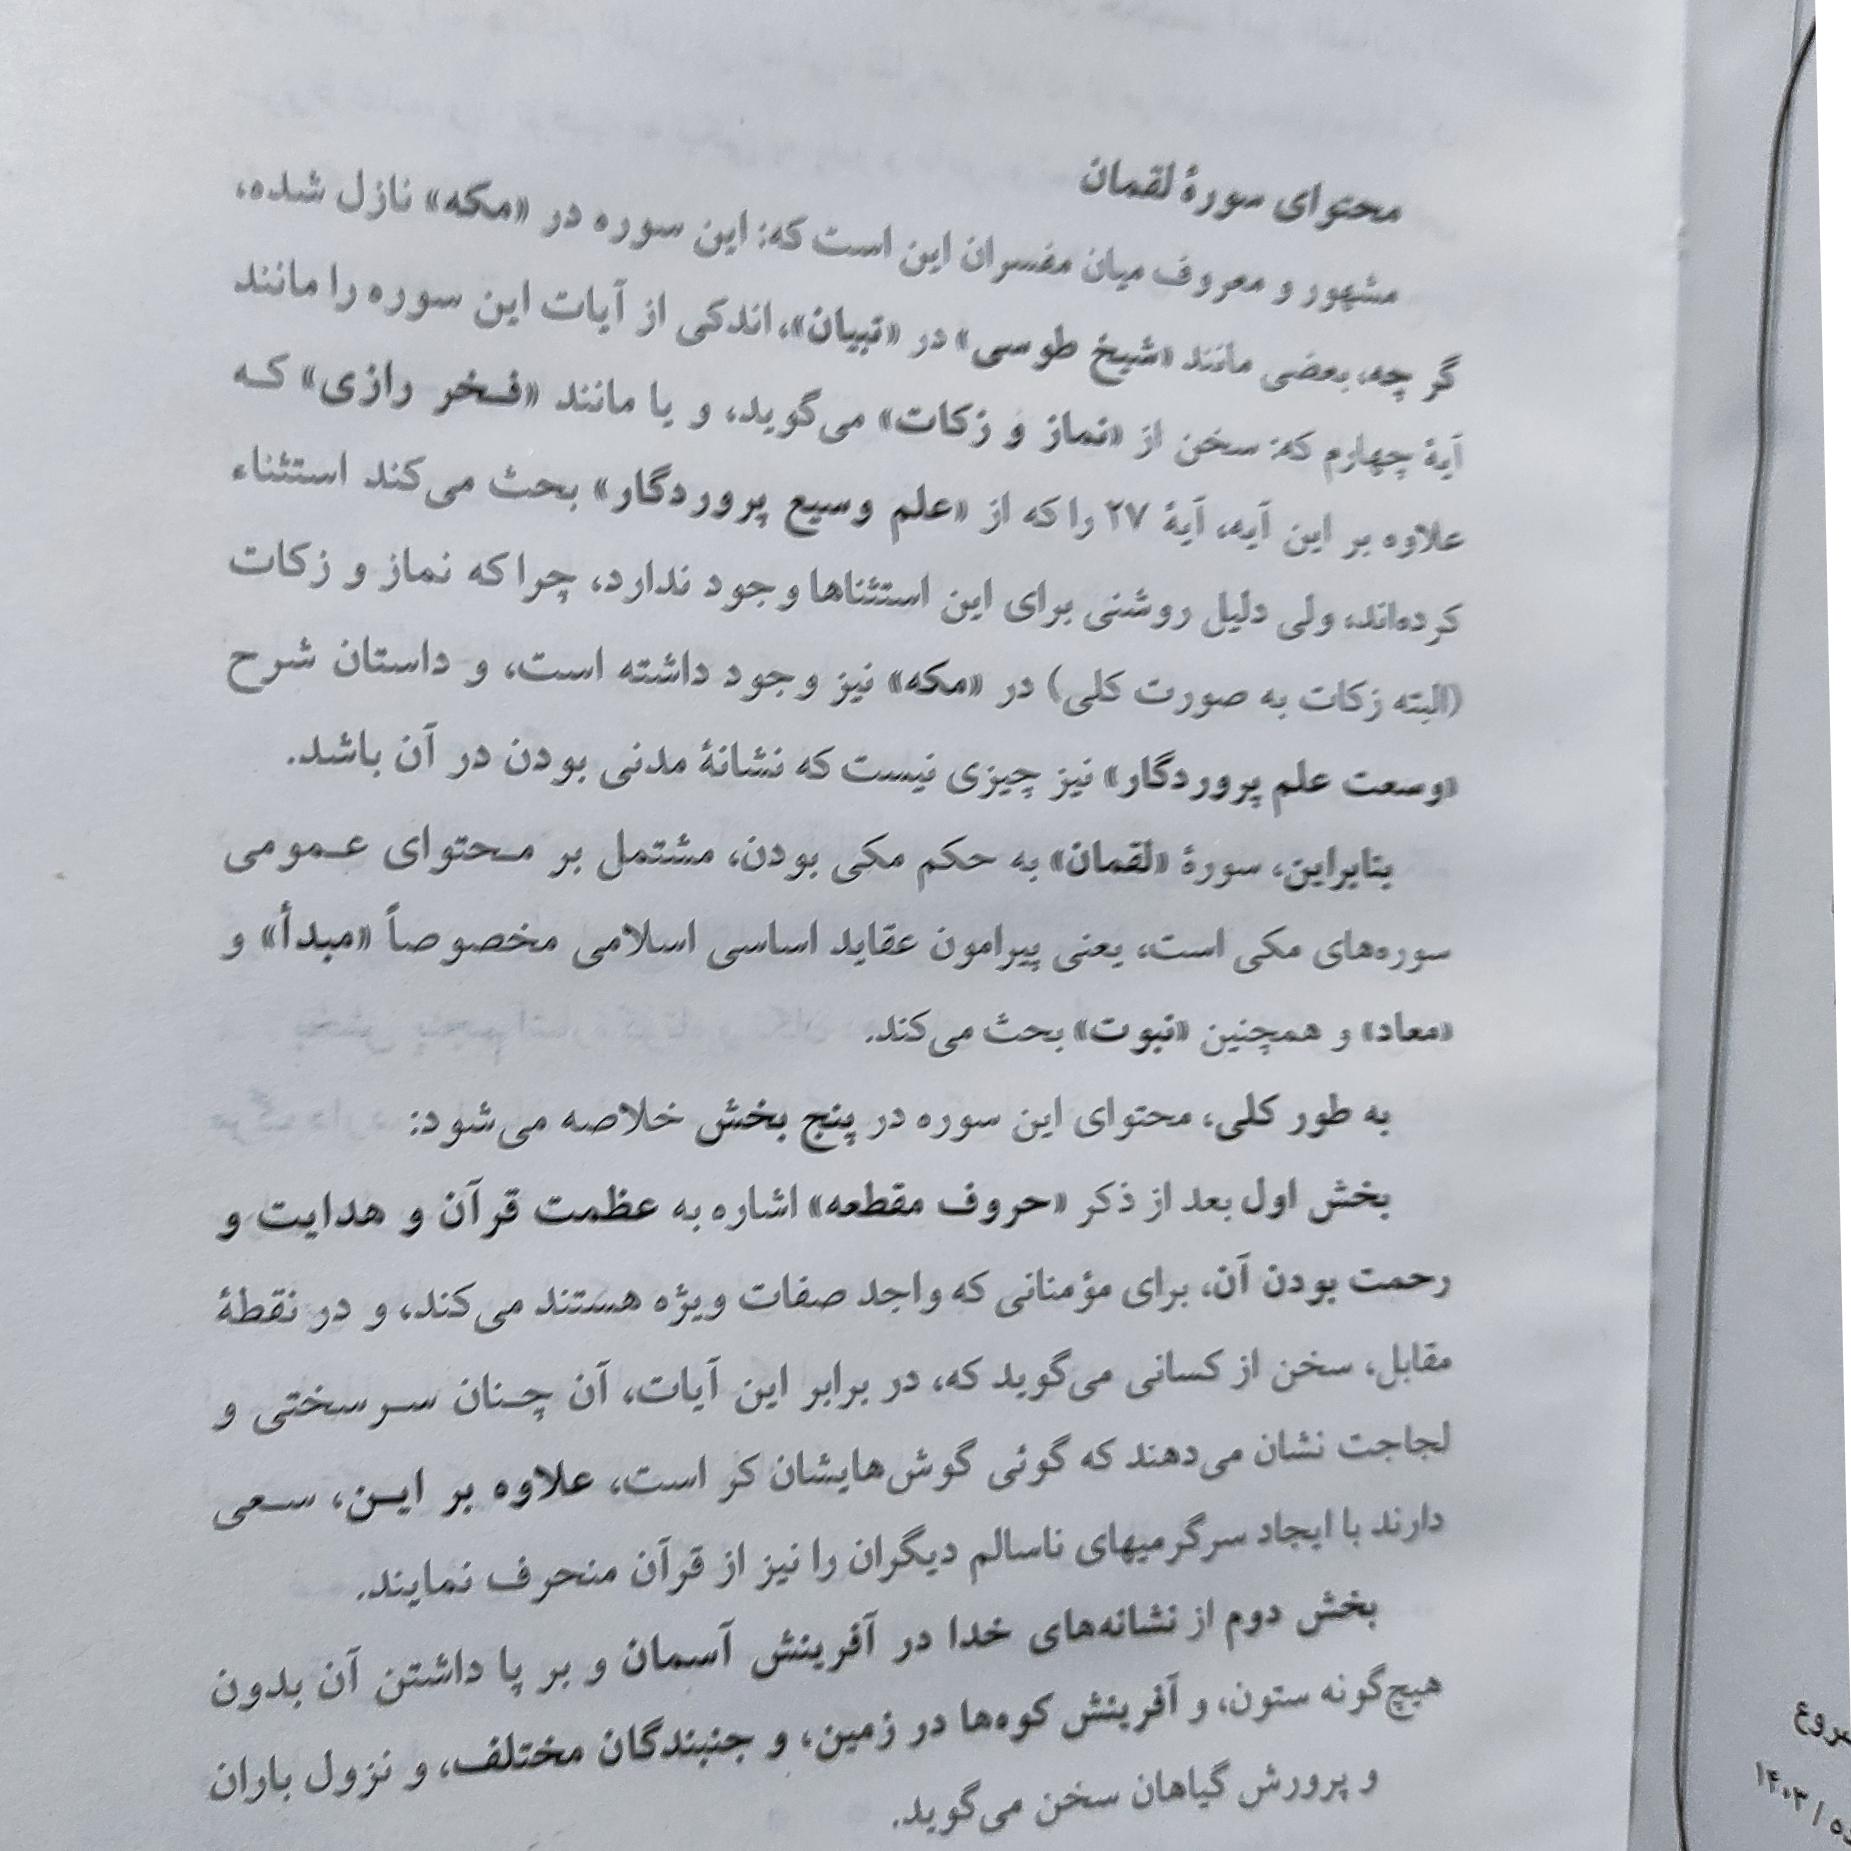 محتوای سورهٔ لقمان
مشهور و معروف میان مفسران این است که: این سوره در «مکه» نازل شده،
گر چه، بعضی مانند «شیخ طوسی» در «تبیان»، اندکی از آیات این سوره را مانند
آیهٔ چهارم که: سخن از «نماز و زکات» می‌گوید، و یا مانند «فخر رازی» که
علاوه بر این آیه، آیهٔ ۲۷ را که از «علم وسیع پروردگار» بحث می‌کند استثناء
کرده‌اند، ولی دلیل روشنی برای این استثناها وجود ندارد، چرا که نماز و زکات
(البته زکات به صورت کلی) در «مکه» نیز وجود داشته است، و داستان شرح
«وسعت علم پروردگار» نیز چیزی نیست که نشانهٔ مدنی بودن در آن باشد.
بنابراین، سورهٔ «لقمان» به حکم مکی بودن، مشتمل بر محتوای عمومی
سوره‌های مکی است، یعنی پیرامون عقاید اساسی اسلامی مخصوصاً «مبدأ» و
«معاد» و همچنین «نبوت» بحث می‌کند.
به طور کلی، محتوای این سوره در پنج بخش خلاصه می‌شود:
بخش اول بعد از ذکر «حروف مقطعه» اشاره به عظمت قرآن و هدایت و
رحمت بودن آن، برای مؤمنانی که واجد صفات ویژه هستند می‌کند، و در نقطهٔ
مقابل، سخن از کسانی می‌گوید که، در برابر این آیات، آن چنان سرسختی و
لجاجت نشان می‌دهند که گوئی گوش‌هایشان کر است، علاوه بر این، سعی
دارند با ایجاد سرگرمیهای ناسالم دیگران را نیز از قرآن منحرف نمایند.
بخش دوم از نشانه‌های خدا در آفرینش آسمان و بر پا داشتن آن بدون
هیچ‌گونه ستون، و آفرینش کوه‌ها در زمین، و جنبندگان مختلف، و نزول باران
و پرورش گیاهان سخن می‌گوید.